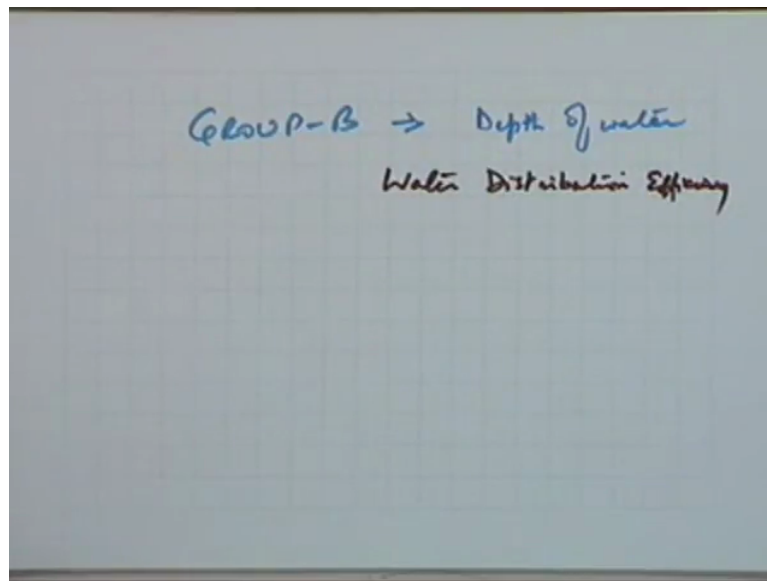 GROUP-B → Depth of water
Water Distribution Efficiency